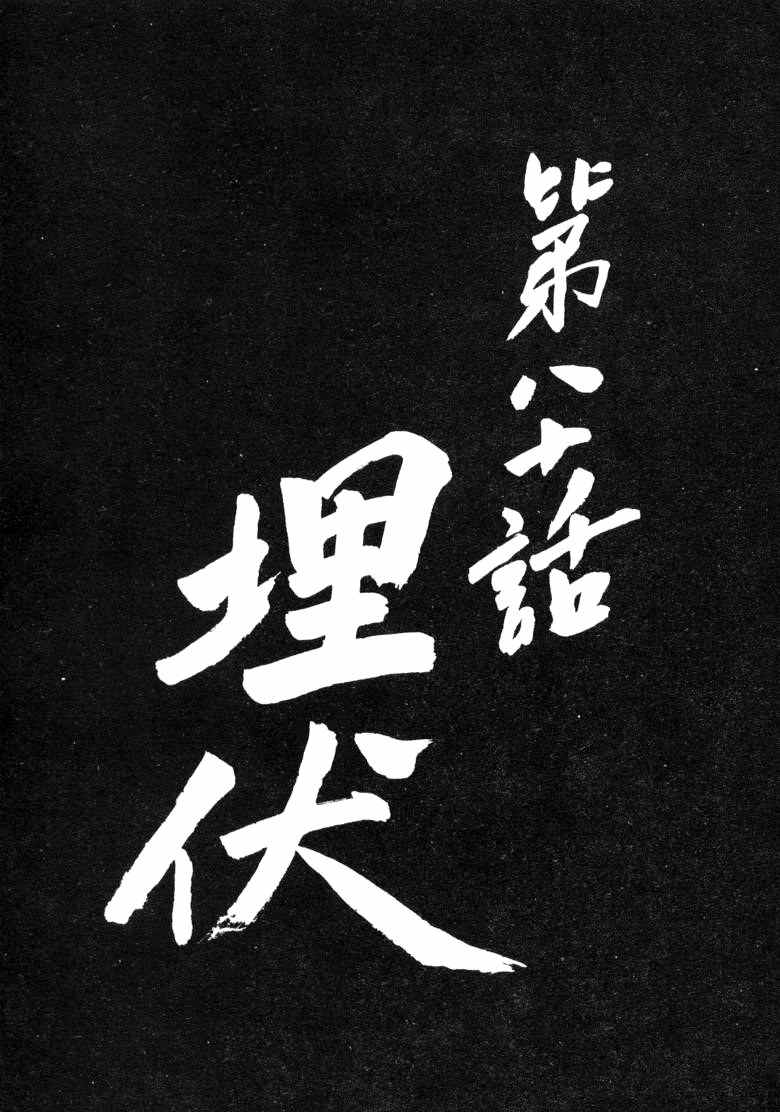 第八十話
埋伏